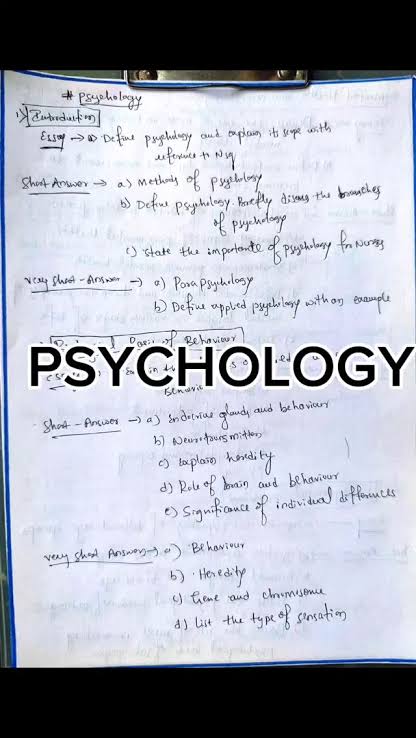 # Psychology
1) Introduction
Essay → a) Define psychology and explain its scope with
reference to Nsg
Short Answer → a) Methods of psychology
b) Define psychology. Briefly discuss the branches
of psychology
c) State the importance of psychology for Nurses
very short-Answer → a) Parapsychology
b) Define applied psychology with an example
of Behaviour
PSYCHOLOGY
Short-Answer → a) Endocrine glands and behaviour
b) Neurotransmitters
c) Explain heredity
d) Role of brain and behaviour
e) Significance of individual differences
very short Answer → a) Behaviour
b) Heredity
c) Gene and chromosome
d) List the type of sensation